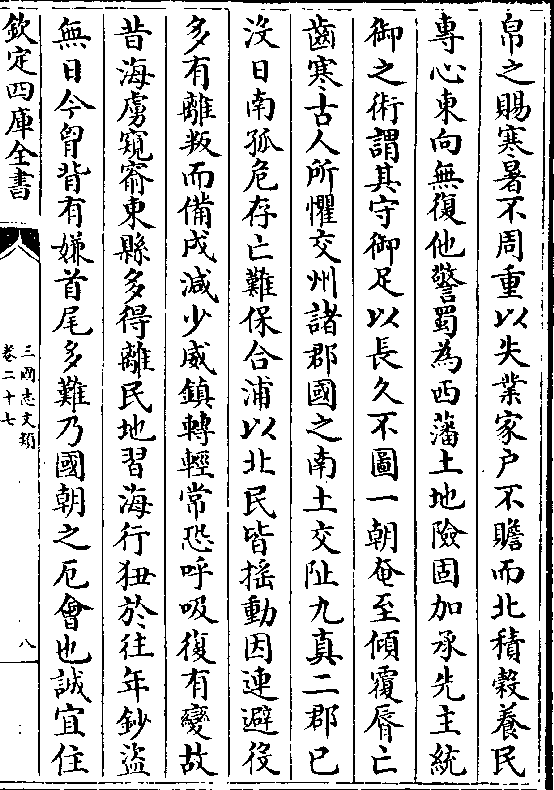 帛之賜寒暑不周重以失業家户不贍而北積穀養民
專心東向無復他警蜀為西藩土地險固加承先主統
御之術謂其守御足以長久不圖一朝奄至傾覆脣亡
齒寒古人所懼交州諸郡國之南土交阯九真二郡已
没日南孤危存亡難保合浦以北民皆揺動因連避役
多有離叛而備戍減少威鎮轉輕常恐呼吸復有變故
昔海虜窺窬東縣多得離民地習海行狃於往年鈔盜
無日今胷背有嫌首尾多難乃國朝之厄會也誠宜住
欽定四庫全書
三國志文類
卷二十七
八